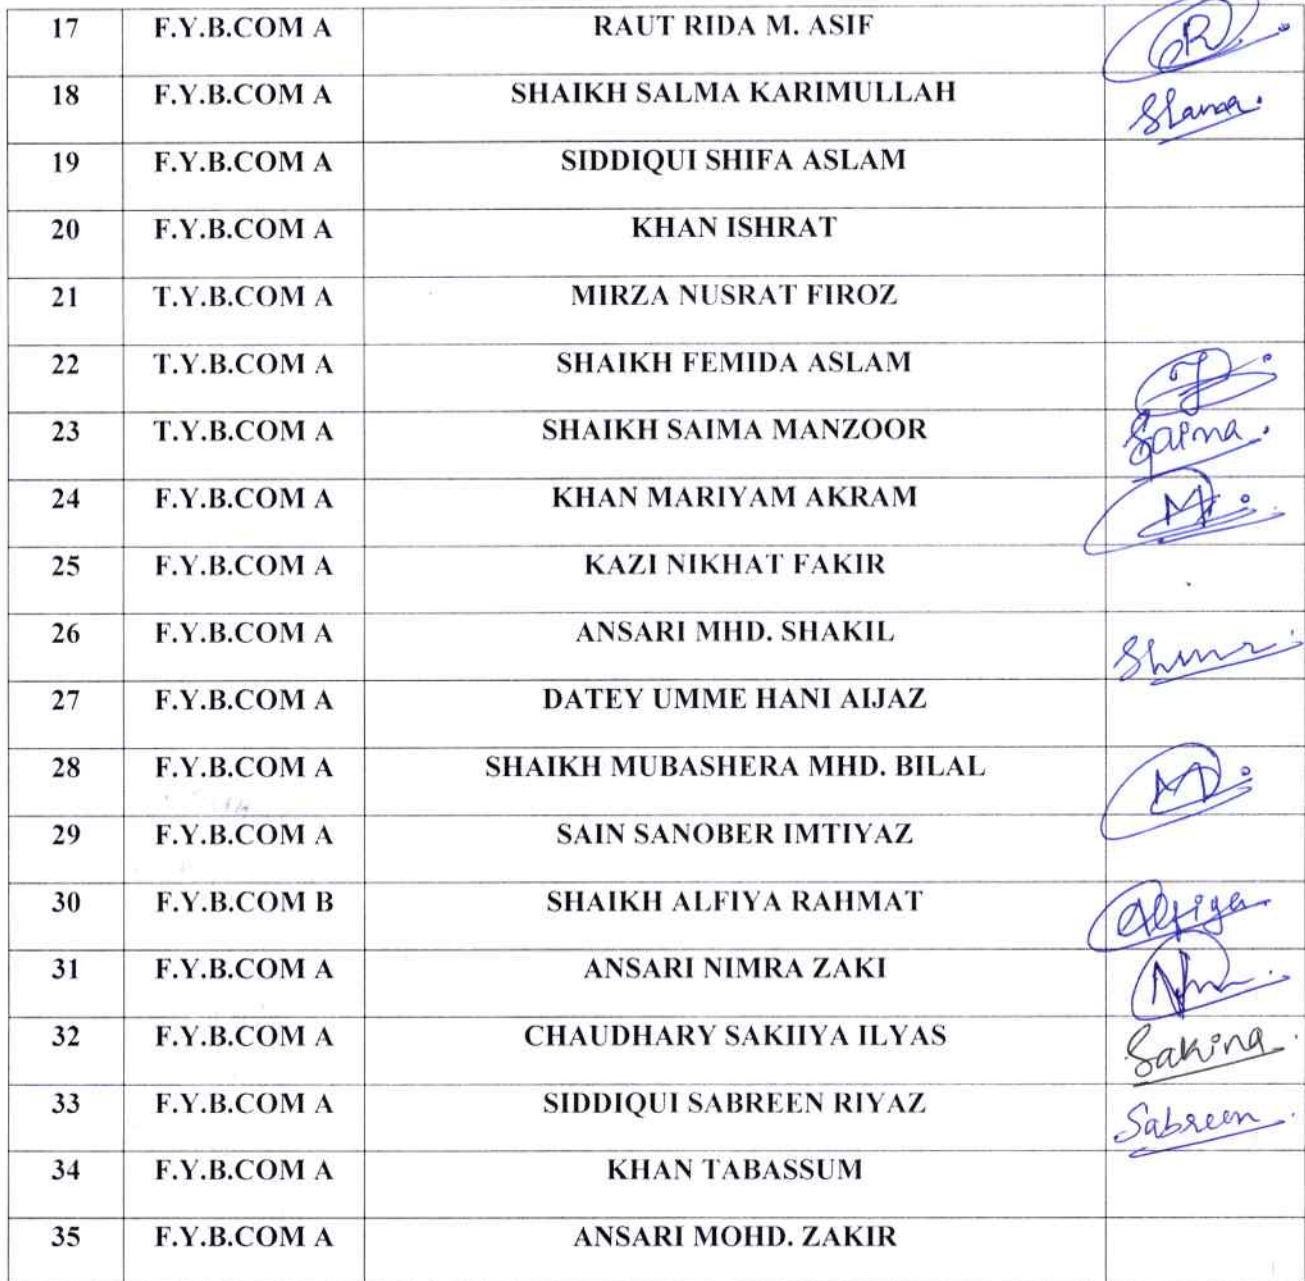 17 F.Y.B.COM A RAUT RIDA M. ASIF R
18 F.Y.B.COM A SHAIKH SALMA KARIMULLAH
19 F.Y.B.COM A SIDDIQUI SHIFA ASLAM
20 F.Y.B.COM A KHAN ISHRAT
21 T.Y.B.COM A MIRZA NUSRAT FIROZ
22 T.Y.B.COM A SHAIKH FEMIDA ASLAM
23 T.Y.B.COM A SHAIKH SAIMA MANZOOR Saima.
24 F.Y.B.COM A KHAN MARIYAM AKRAM
25 F.Y.B.COM A KAZI NIKHAT FAKIR
26 F.Y.B.COM A ANSARI MHD. SHAKIL
27 F.Y.B.COM A DATEY UMME HANI AIJAZ
28 F.Y.B.COM A SHAIKH MUBASHERA MHD. BILAL
29 F.Y.B.COM A SAIN SANOBER IMTIYAZ
30 F.Y.B.COM B SHAIKH ALFIYA RAHMAT Alfiya
31 F.Y.B.COM A ANSARI NIMRA ZAKI
32 F.Y.B.COM A CHAUDHARY SAKIIYA ILYAS Sakina.
33 F.Y.B.COM A SIDDIQUI SABREEN RIYAZ Sabreen.
34 F.Y.B.COM A KHAN TABASSUM
35 F.Y.B.COM A ANSARI MOHD. ZAKIR